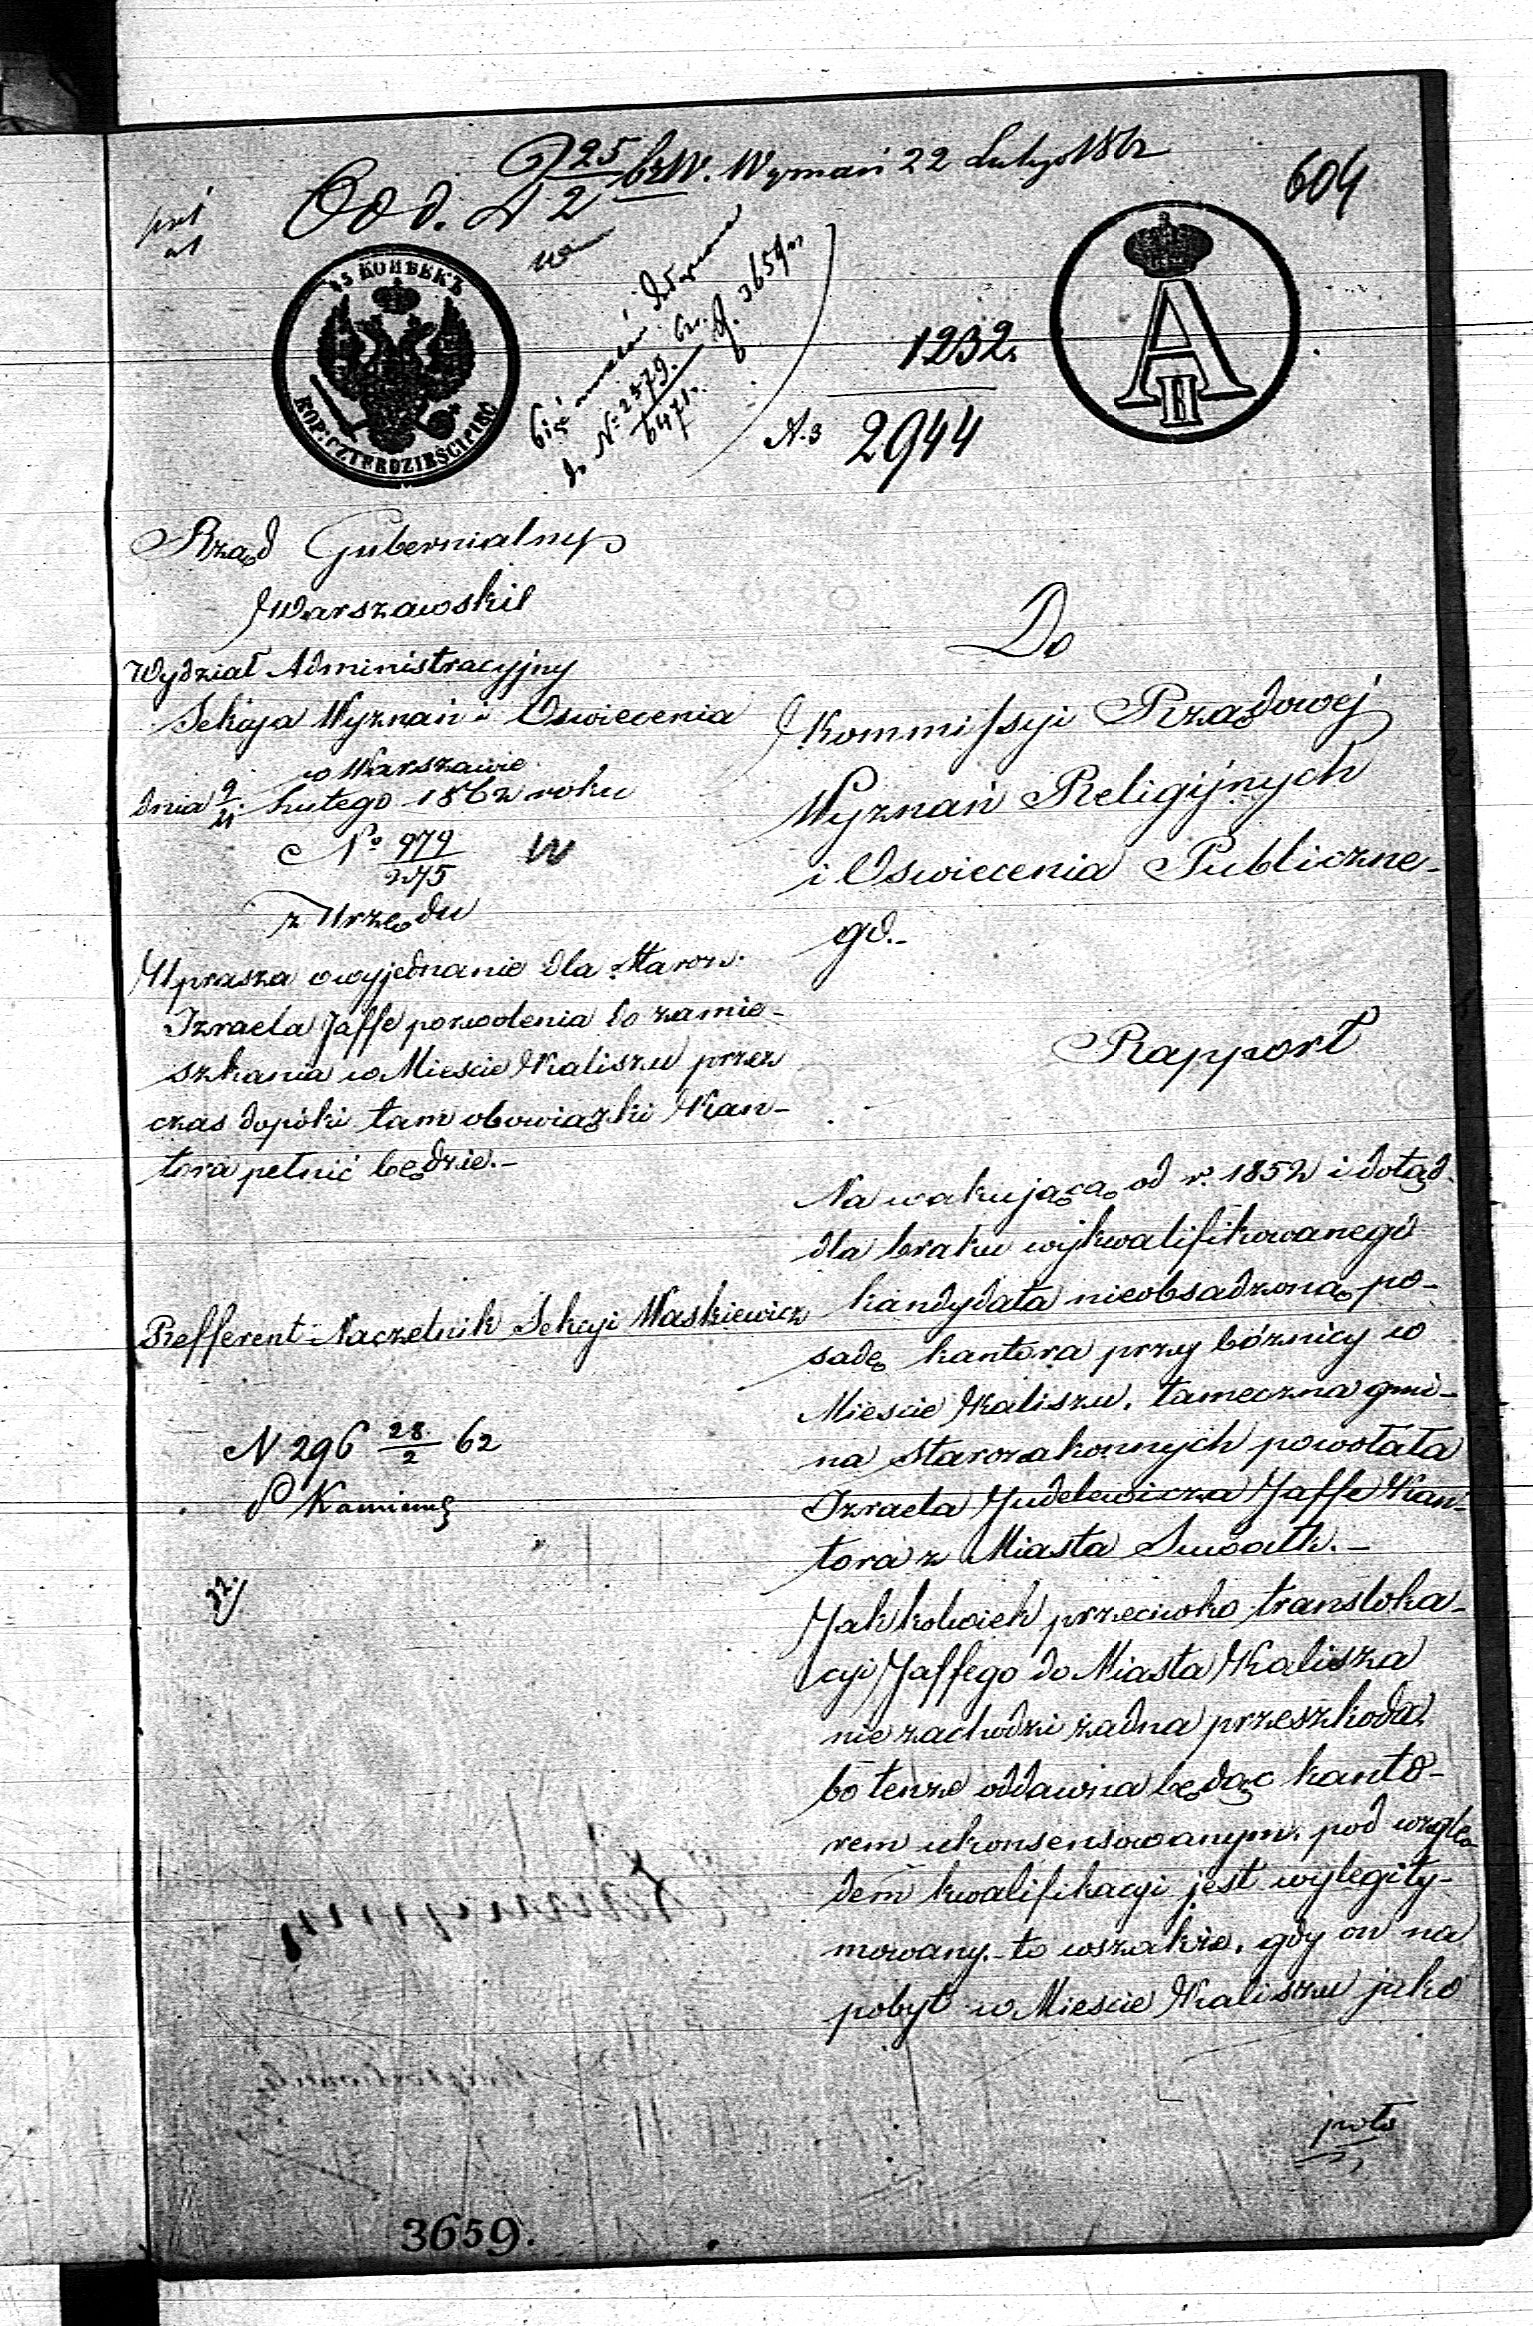 604
Odd. 2 25/2 62 W. Wyznań 22 Lutego 1862
45 КОПѢЕКЪ
KOP: CZTERDZIEŚCI PIĘĆ
A II
do № 2579.
6471.
3659
1232.
2944
Rząd Gubernialny
Warszawski
Wydział Administracyjny
Sekcya Wyznań i Oswiecenia
w Warszawie
dnia 9/21 Lutego 1862 roku
№ 979
275
z Urzędu
Uprasza o wyjednanie dla Starozn.
Izraela Jaffe pozwolenia do zamie-
szkania w Miescie Kaliszu przez
czas dopóki tam obowiązki Kan-
tora pełnić będzie.-
Refferent Naczelnik Sekcyi Waskiewicz
N 296 28/2 62
Do
Kommissyi Rządowej
Wyznań Religijnych
i Oswiecenia Publiczne-
go.-
Rapport
Na wakującą od r. 1852 i dotąd
dla braku wykwalifikowanego
kandydata nieobsadzoną po-
sadę kantora przy bóżnicy w
Miescie Kaliszu, tameczna gmi-
na Starozakonnych powołała
Izraela Judelewicza Jaffe Kan-
tora z Miasta Suwałk.-
Jakkolwiek przeciwko transloka-
cyi Jaffego do Miasta Kalisza
nie zachodzi żadna przeszkoda,
bo tenże oddawna będąc kanto-
rem ukonsensowanym, pod wzglę-
dem kwalifikacyi jest wylegity-
mowany.- to wszakże, gdy on na
pobyt w Miescie Kaliszu jako
3659.